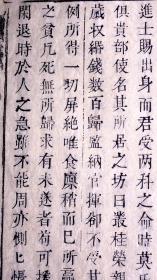 進士賜出身而君受兩科之命時莫
俱貢部使名其所居之坊曰叢桂榮親
歲权緡錢數百歸監納官揮卻不受其
例所得一切屏絶唯食廪稍而已所
之貧凡死無所歸求有未遂者苟可
閑退時於人之急雖不能周亦惻